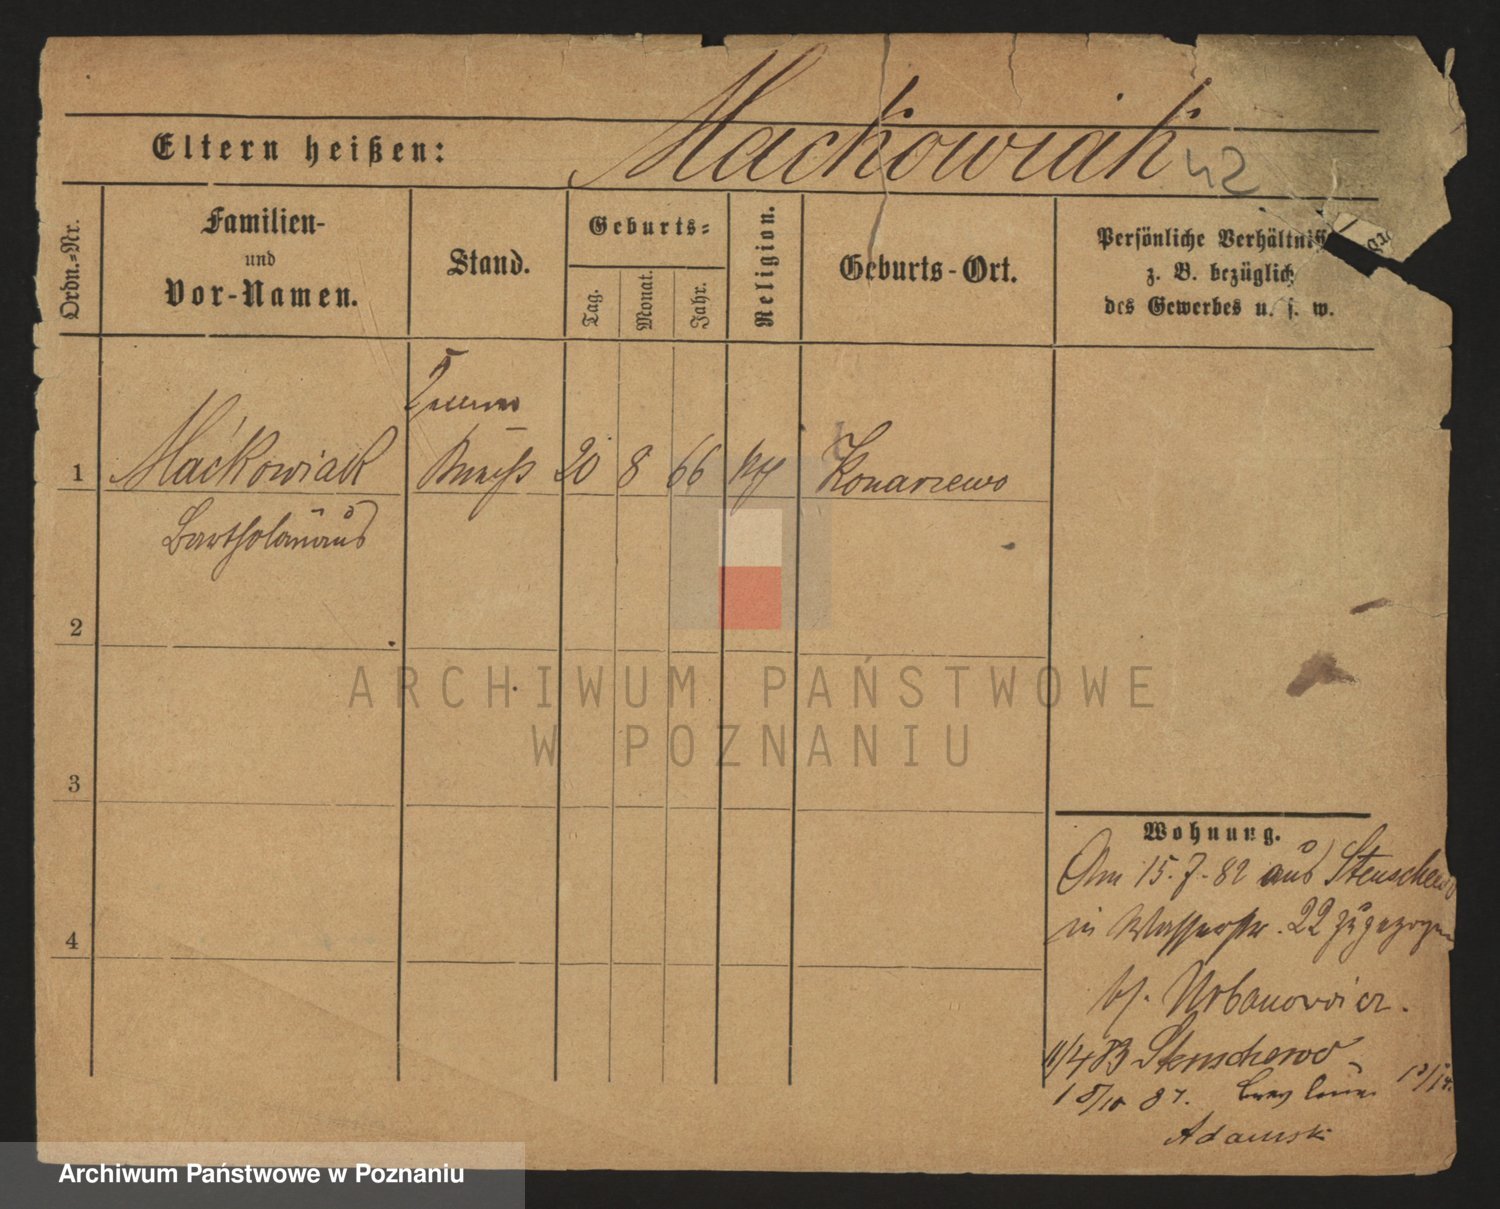 Mackowiak 42
Eltern heißen:
Ordn.-Nr.
Familien-
und
Vor-Namen.
Stand.
Geburts-
Tag.
Monat.
Jahr.
Religion.
Geburts-Ort.
Persönliche Verhältniss
z. B. bezüglich
des Gewerbes u. s. w.
1 Mackowiack 20 8 66 Konarzewo
Bartholomäus
2
3
4
Wohnung.
Am 15.7.82 aus Stenschewo
in Wasserstr. 22 zugezogen
bei Urbanowicz.
11/4 83 Stenschewo
18/10 87.
Adamski
ARCHIWUM PAŃSTWOWE
W POZNANIU
Archiwum Państwowe w Poznaniu